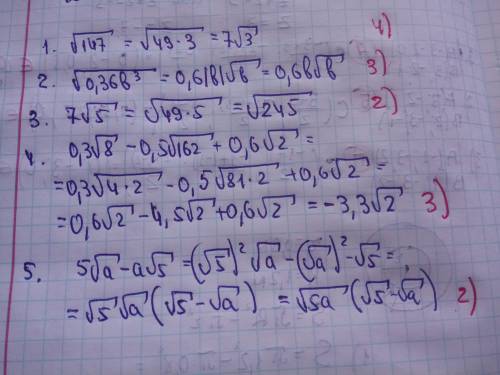 1. √147 = √49·3 = 7√3 4)
2. √0,36в³ = 0,6|в|√в = 0,6в√в 3)
3. 7√5 = √49·5 = √245 2)
4. 0,3√8 - 0,5√162 + 0,6√2 =
= 0,3√4·2 - 0,5√81·2 + 0,6√2 =
= 0,6√2 - 4,5√2 + 0,6√2 = -3,3√2 3)
5. 5√a - a√5 = (√5)²√a - (√a)² - √5 =
= √5√a (√5 - √a) = √5a (√5 - √a) 2)